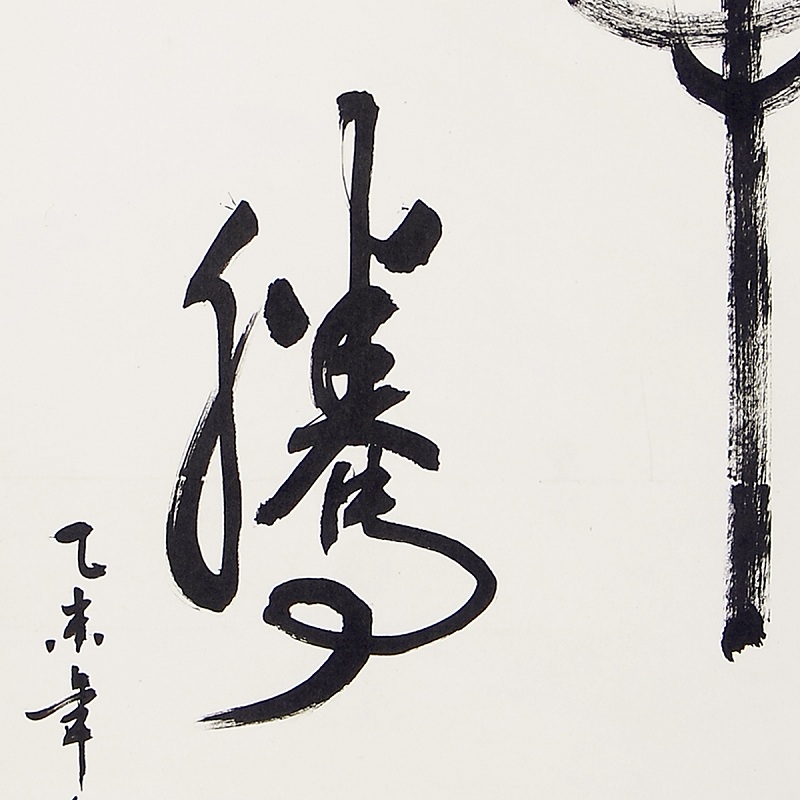 騰
乙未年